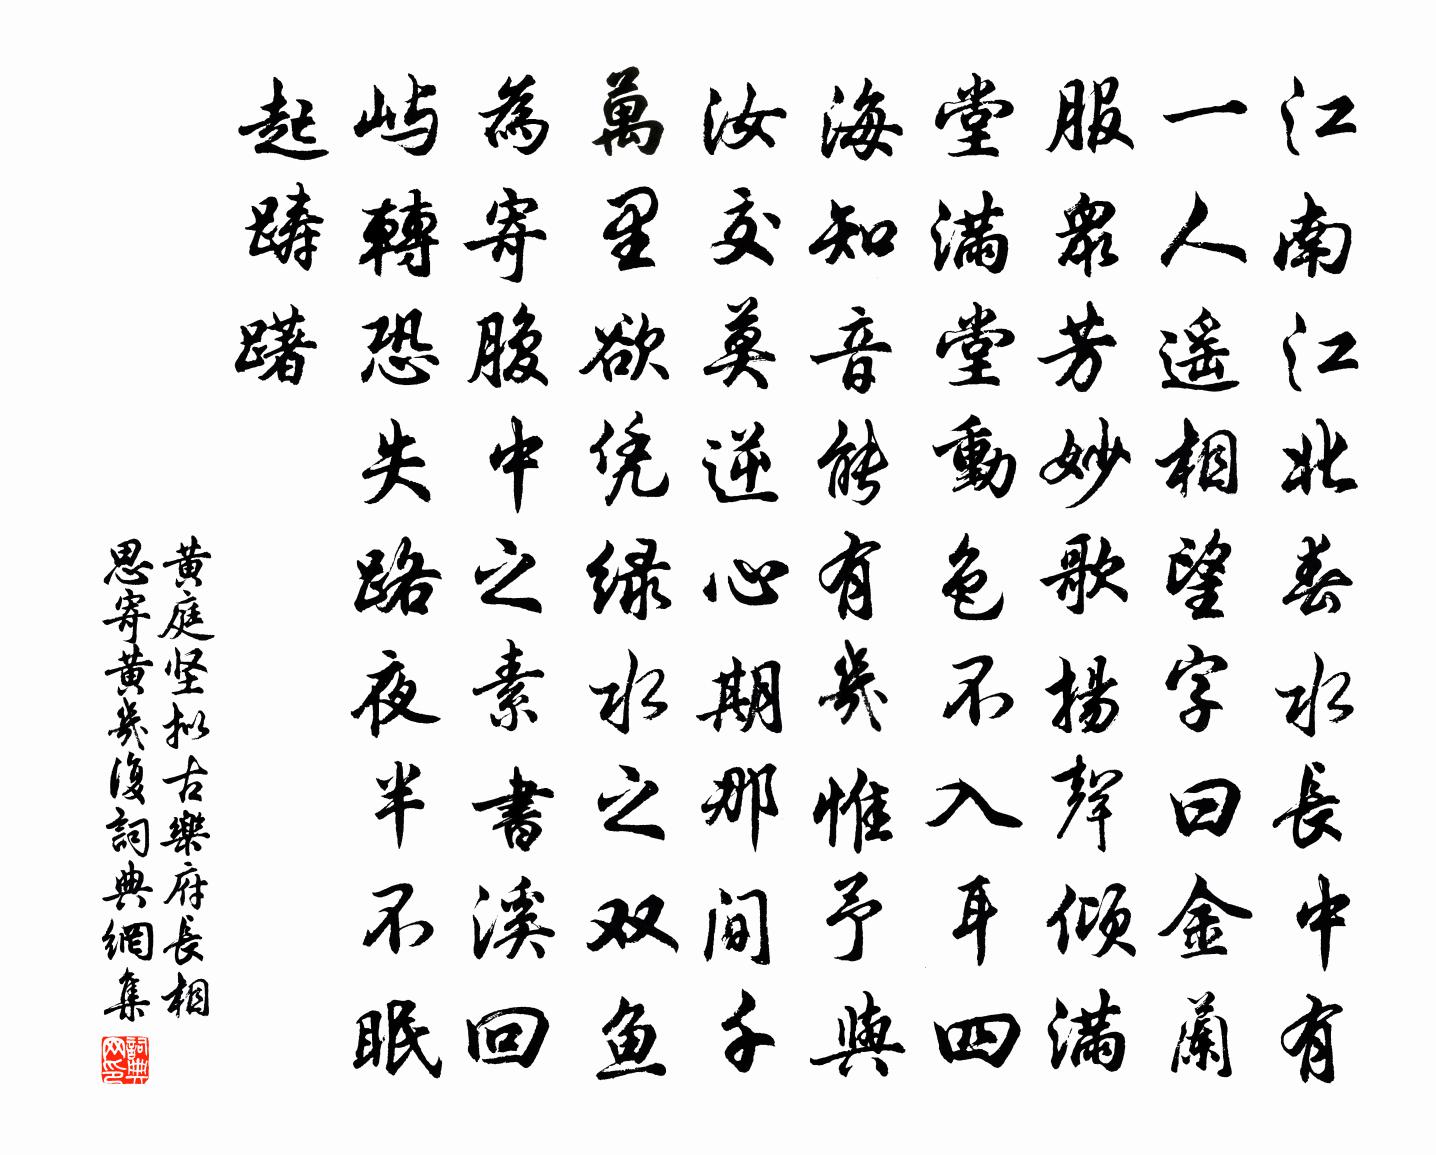 江南江北春水長中有
一人遥相望字曰金蘭
服衆芳妙歌揚聲傾滿
堂滿堂動色不入耳四
海知音能有幾惟予與
汝交莫逆心期那間千
萬里欲凭緑水之双鱼
為寄腹中之素書溪回
屿轉恐失路夜半不眠
起躊躇
黄庭坚拟古樂府長相
思寄黄幾復詞典網集
詞典
网印